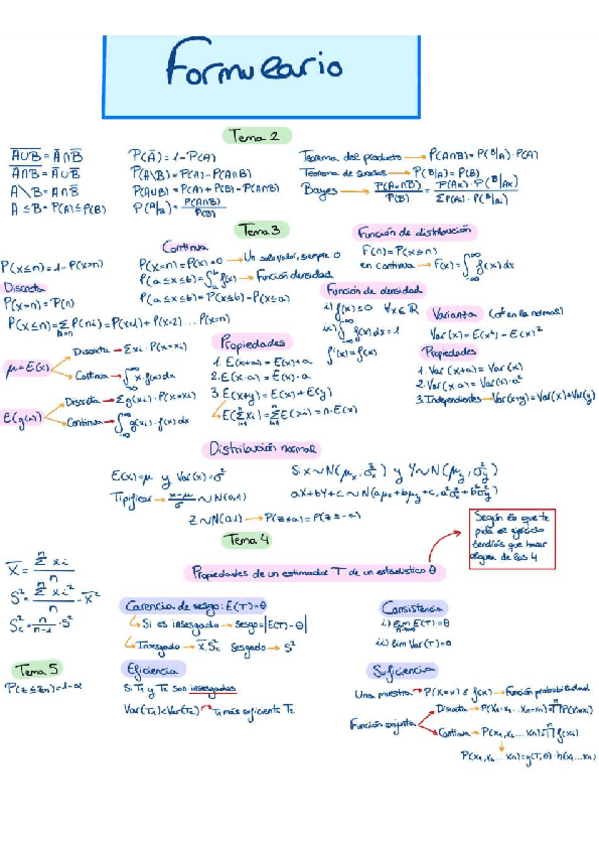 Formulario
Tema 2
A∪B̅ = A̅∩B̅
A∩B̅ = A̅∪B̅
A\B = A∩B̅
A ≤ B = P(A) ≤ P(B)
P(A̅) = 1 - P(A)
P(A\B) = P(A) - P(A∩B)
P(A∪B) = P(A) + P(B) - P(A∩B)
P(A/B) = P(A∩B) / P(B)
Teorema del producto → P(A∩B) = P(B/A) · P(A)
P(B/A) = P(B)
Bayes → P(Ax∩B) / P(B) = P(Ax) · P(B/Ax) / ΣP(Ai) · P(B/Ai)
Tema 3
P(X≤n) = 1 - P(X>n)
Discreta
P(X=n) = P(n)
P(X≤n) = Σ P(ni) = P(X=1) + P(X=2) ... P(X=n)
Continua
P(X=n) = P(x) = 0 → Un solo valor, siempre 0
P(a≤x≤b) = ∫ₐᵇ f(x) → Función densidad
P(a≤x≤b) = P(x≤b) - P(x≤a)
Función de distribución
F(n) = P(x≤n)
en continua → F(x) = ∫ f(x) dx
Función de densidad
i) f(x) ≥ 0 ∀x∈ℝ
ii) ∫ f(x) dx = 1
F'(x) = f(x)
Varianza (σ² en la normal)
Var(x) = E(x²) - E(x)²
Propiedades
1. Var(x+a) = Var(x)
2. Var(x·a) = Var(x)·a²
3. Independientes → Var(x+y) = Var(x) + Var(y)
μ = E(x)
Discreta → Σxi · P(x=xi)
Continua → ∫ x · f(x) dx
E(g(x))
Discreta → Σg(xi) · P(x=xi)
Continua → ∫ g(xi) · f(x) dx
Propiedades
1. E(x+a) = E(x) + a
2. E(x·a) = E(x) · a
3. E(x+y) = E(x) + E(y)
E(Σxi) = ΣE(xi) = n · E(x)
Distribución normal
E(x) = μ y Var(x) = σ²
Tipificar → x-μ / σ ~ N(0,1)
Z~N(0,1) → P(Z≤a) = P(Z≥-a)
Si X~N(μx, σx²) y Y~N(μy, σy²)
aX+bY+c ~ N(aμx+bμy+c, a²σx²+b²σy²)
Tema 4
Según lo que te
pida el ejercicio
tendrás que hacer
alguna de las 4
Propiedades de un estimador T de un estadístico θ
X̅ = Σxi / n
S² = Σxi² / n - X̅²
Sc² = n / n-1 · S²
Carencia de sesgo: E(T) = θ
Si es insesgado → Sesgo = |E(T) - θ|
Insesgado → X̅, Sc² Sesgado → S²
Consistencia
i) lim E(T) = θ
ii) lim Var(T) = 0
Tema 5
P(Z≤Zn) = 1-α
Eficiencia
Si T1 y T2 son insesgadas
Var(T1) < Var(T2) → T1 más eficiente T2
Suficiencia
Una muestra → P(X=x) ó f(x) → Función probabilidad
Función conjunta
Discreta → P(X1=x1 ... Xn=xn) = ΠP(X=xi)
Continua → P(x1, x2, ... xn) = Πf(xi)
P(x1, x2, ... xn) = g(T, θ) · h(x1 ... xn)